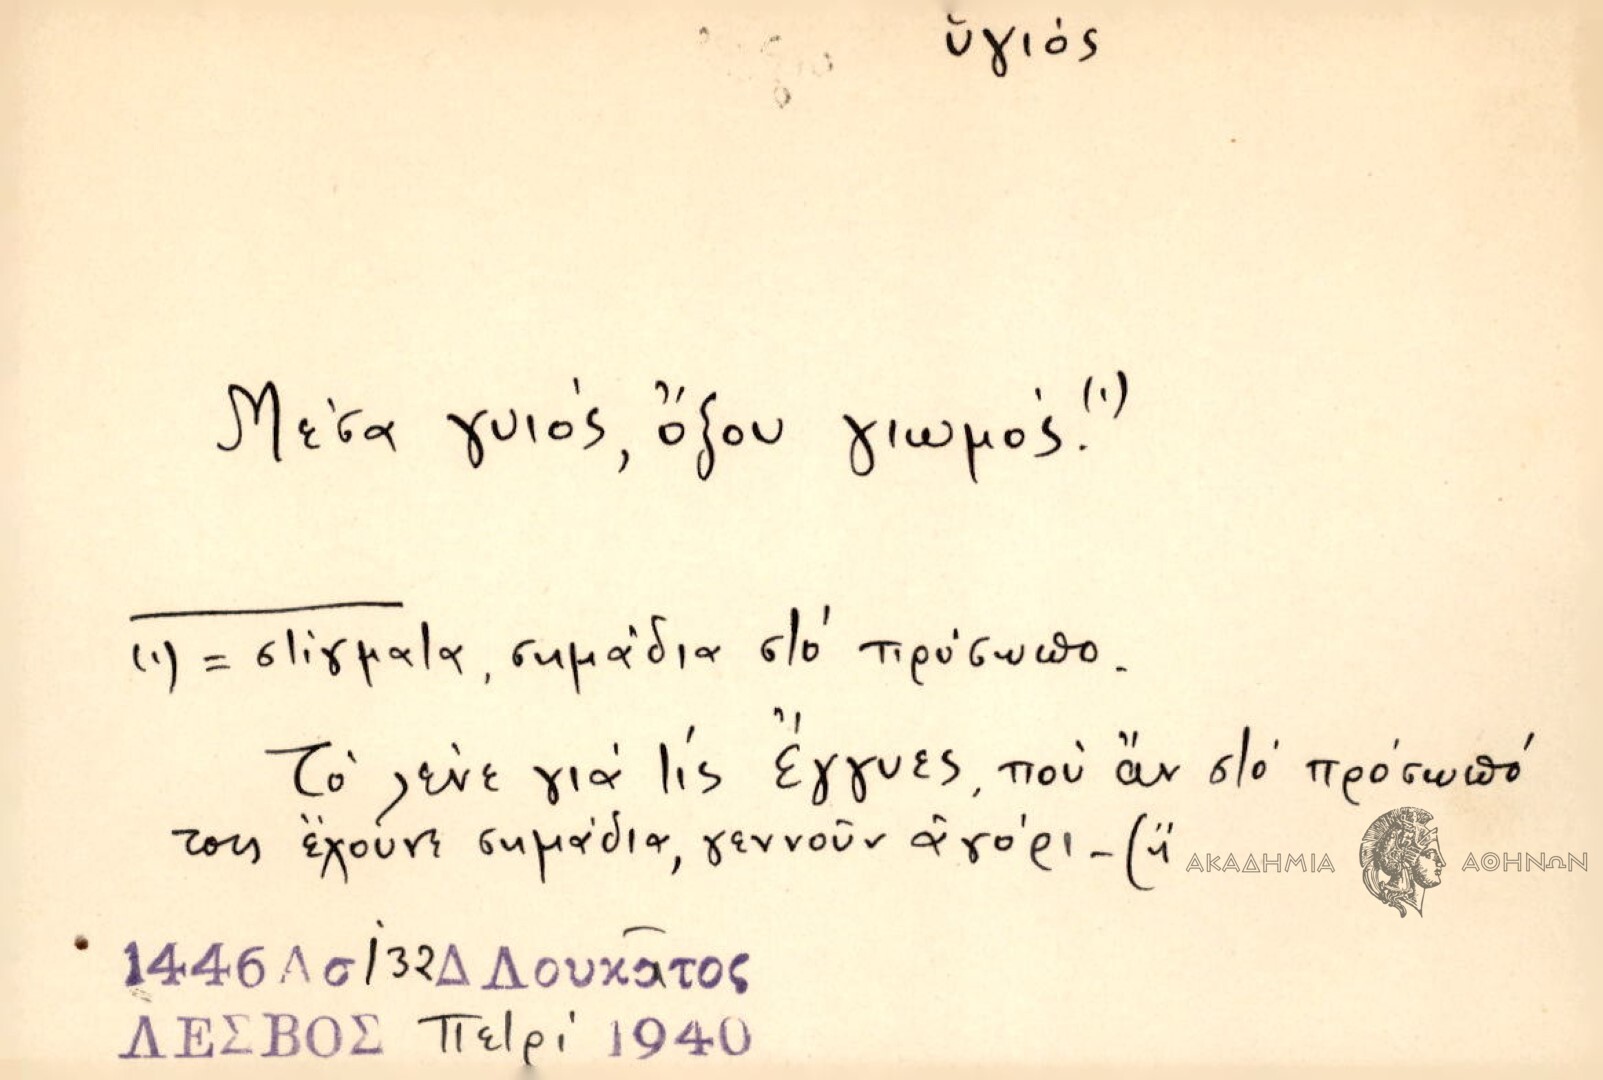 ὑγιός
Μέσα γυιός, ὄξου γιωμός.(1)
(1) = στίγματα, σημάδια στό πρόσωπο.
Τό λένε γιά τίς ἔγγυες, πού ἄν στό πρόσωπό
τους ἔχουνε σημάδια, γεννοῦν ἀγόρι - (ἤ
ΑΚΑΔΗΜΙΑ ΑΘΗΝΩΝ
1446 Λσ/32 Δ Λουκᾶτος
ΛΕΣΒΟΣ Πετρί 1940